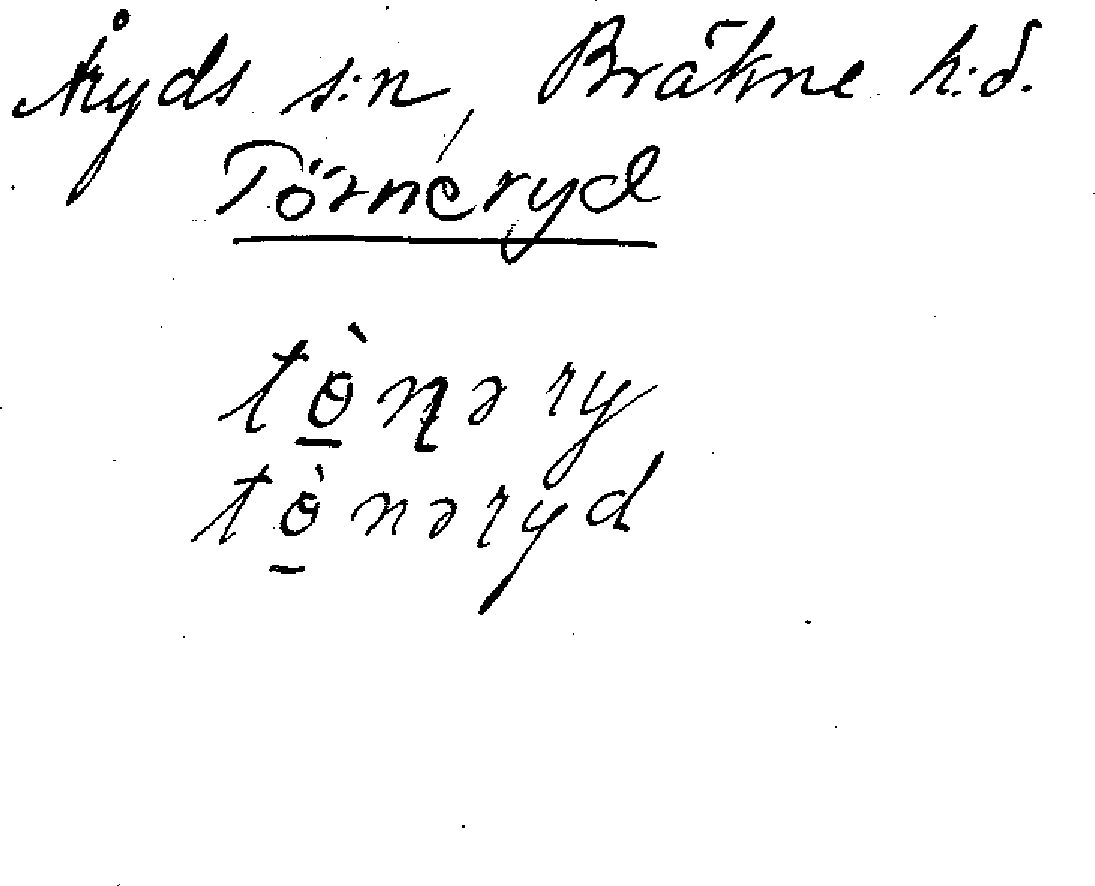 Åryds s:n, Bräkne h:d.
Törneryd
tɵ̠̀ɳəry
tɵ̠̀nəryd